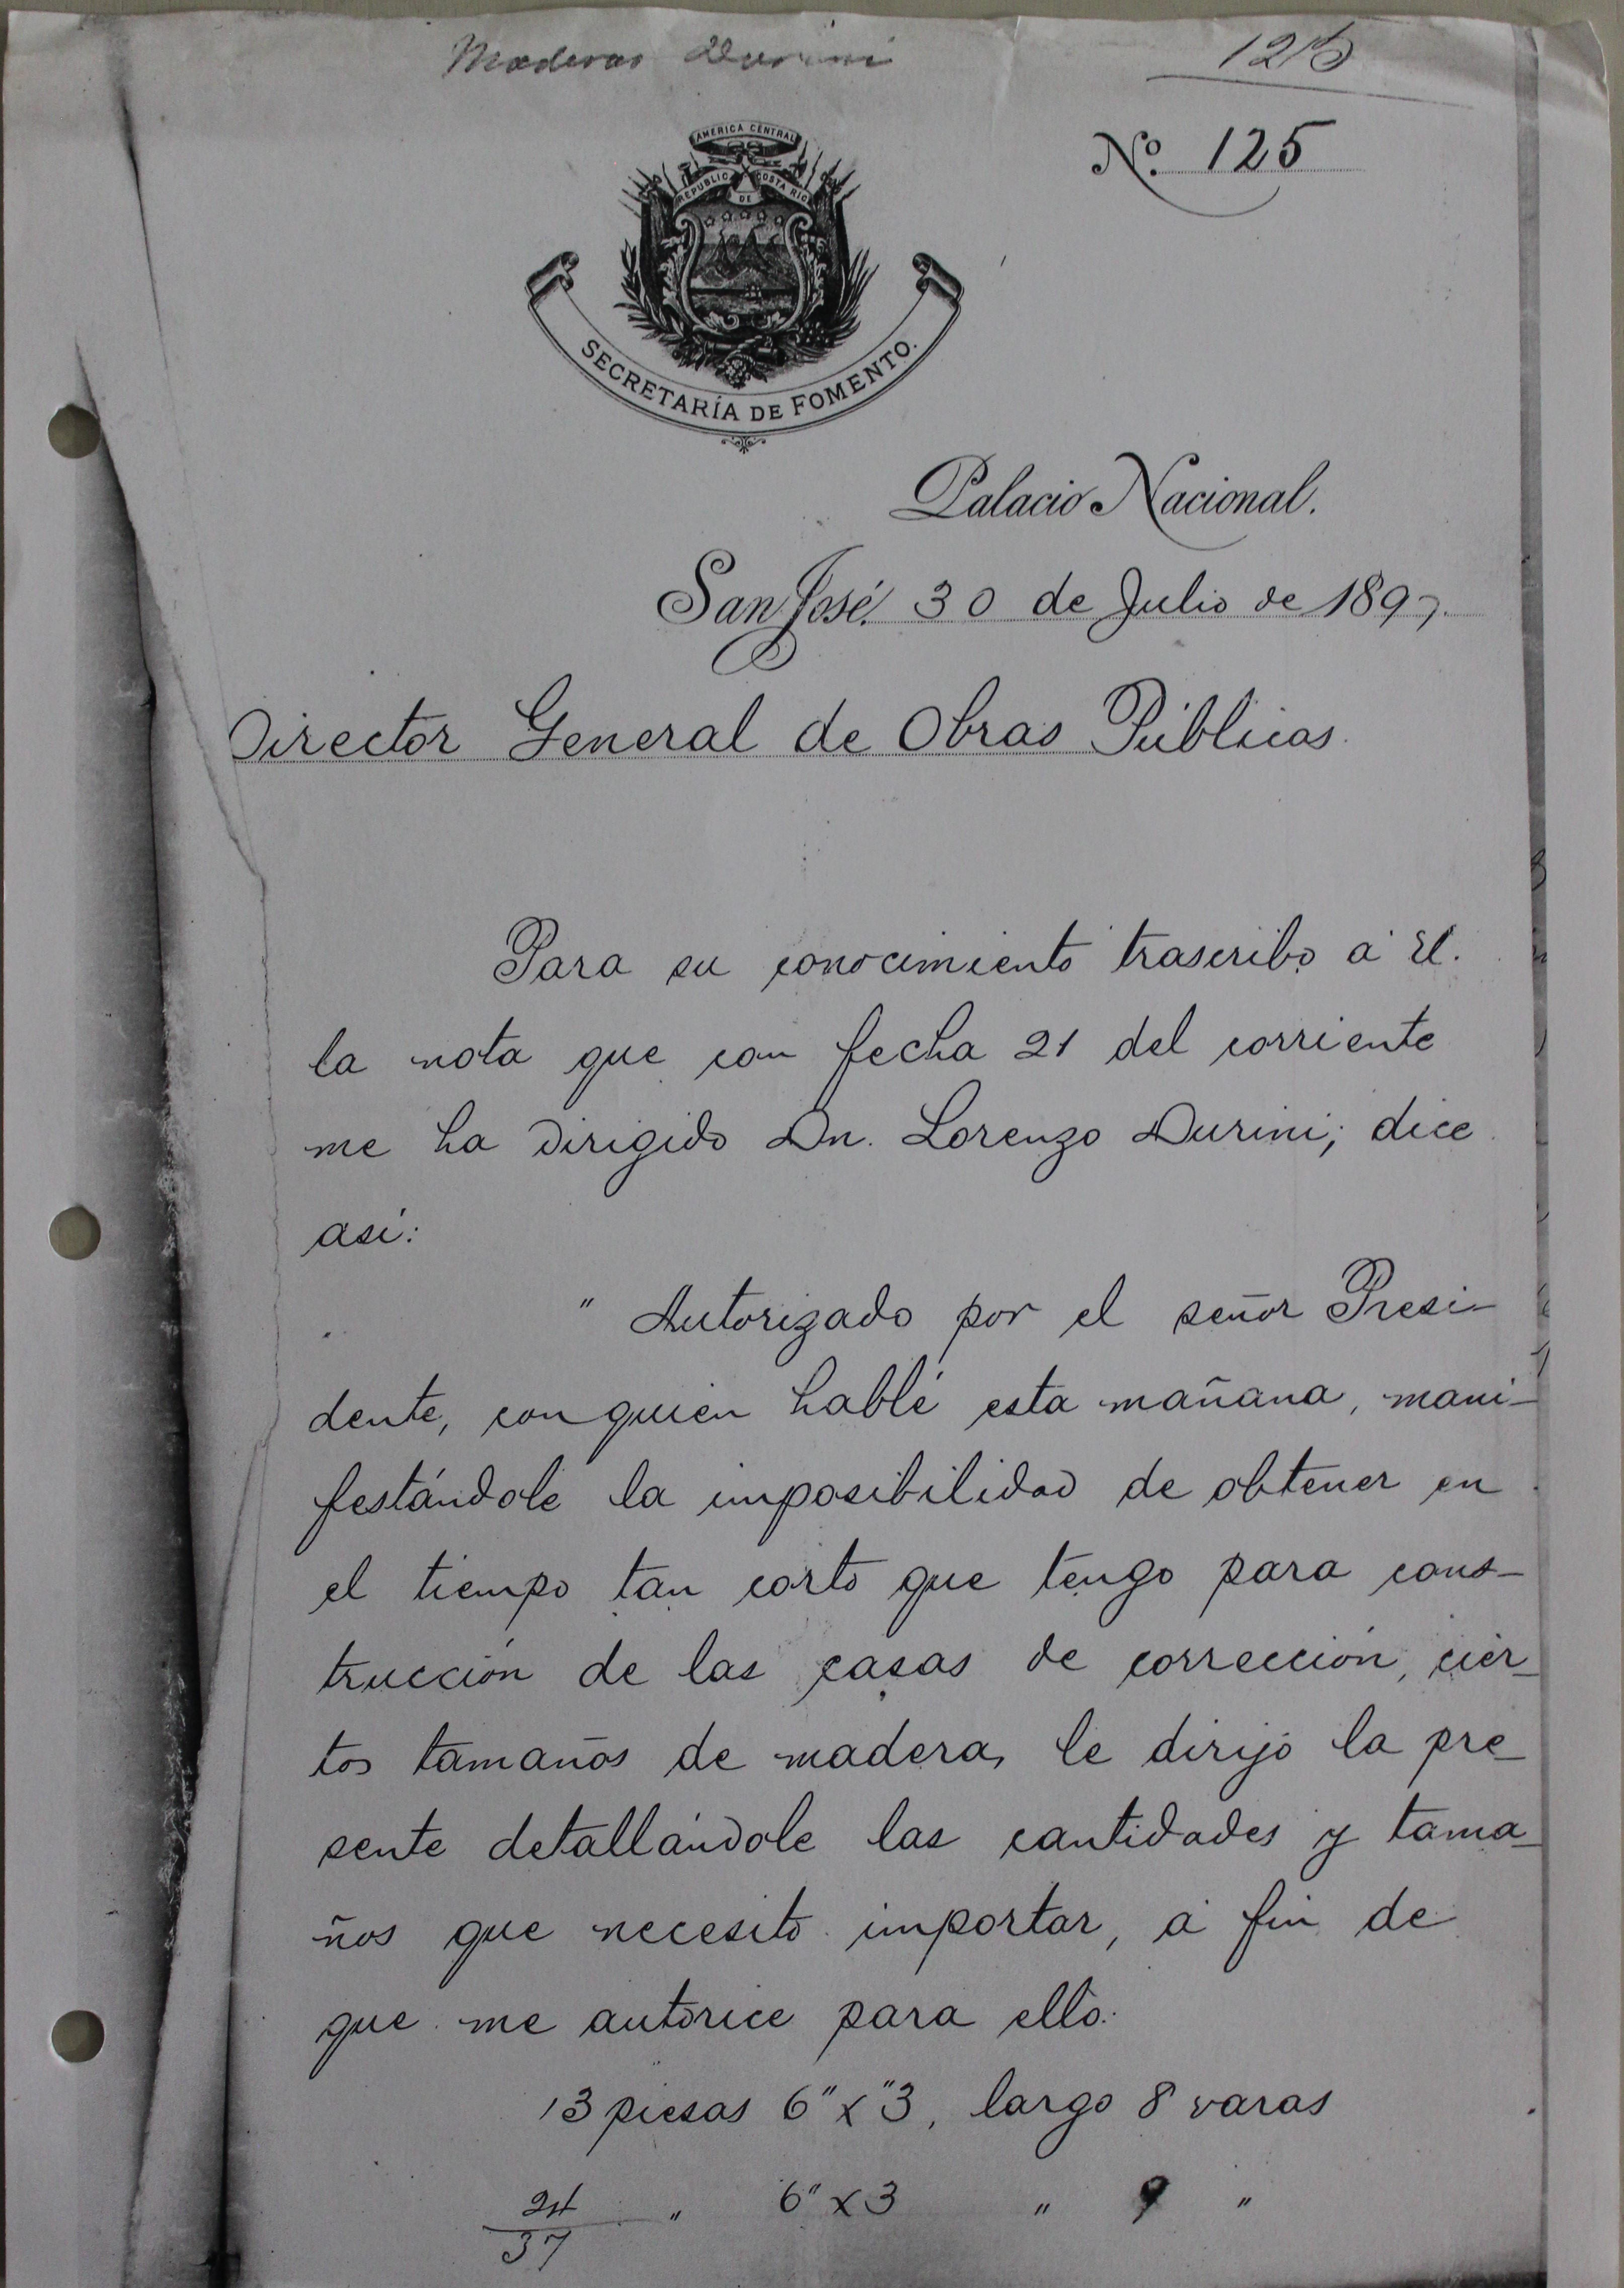 Maderas Durini
125
Nº 125
AMERICA CENTRAL
REPUBLICA DE COSTA RICA
SECRETARÍA DE FOMENTO.
Palacio Nacional.
San José, 30 de Julio de 1897.
Director General de Obras Públicas.
Para su conocimiento trascribo á U.
la nota que con fecha 21 del corriente
me ha dirigido Dn. Lorenzo Durini; dice
así:
" Autorizado por el señor Presi-
dente, con quien hablé esta mañana, mani-
festándole la imposibilidad de obtener en
el tiempo tan corto que tengo para cons-
trucción de las casas de corrección, cier-
tos tamaños de madera, le dirijo la pre-
sente detallándole las cantidades y tama-
ños que necesito importar, á fin de
que me autorice para ello.
13 piesas 6" x "3, largo 8 varas
24 " 6" x 3 " 9 "
37